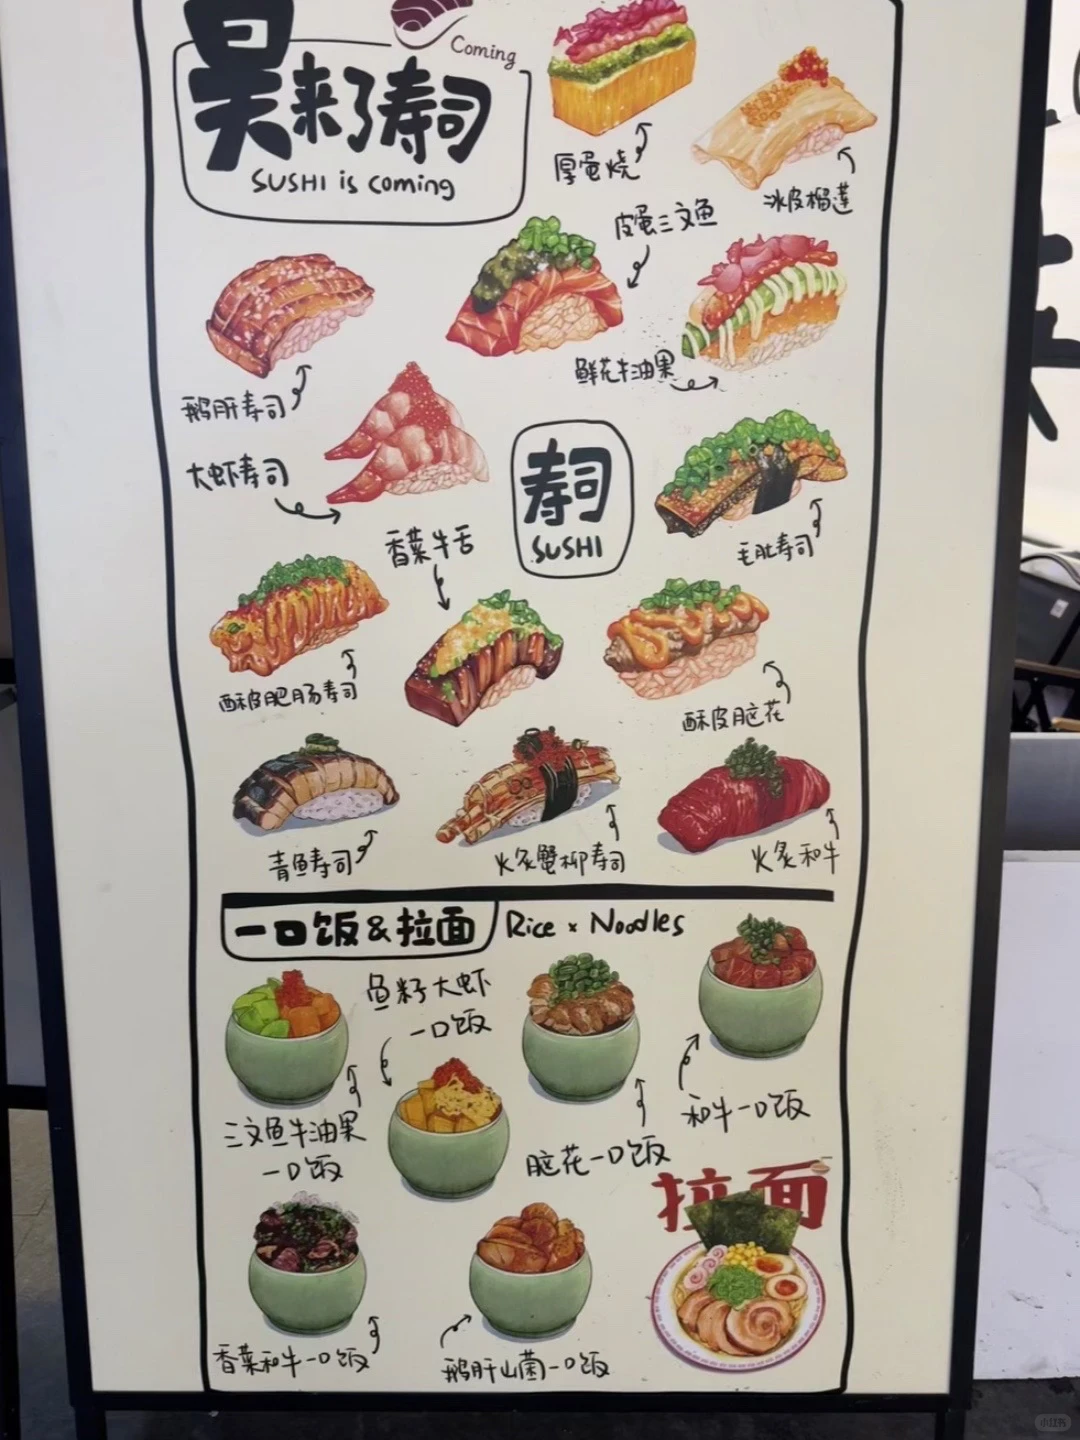 Coming
昊来了寿司
SUSHI is coming
厚蛋烧
冰皮榴莲
皮蛋三文鱼
鲜花牛油果
鹅肝寿司
大虾寿司
寿司
SUSHI
香菜牛舌
毛肚寿司
酥皮肥肠寿司
酥皮脑花
青鱼寿司
火炙蟹柳寿司
火炙和牛
一口饭&拉面
Rice × Noodles
鱼籽大虾
一口饭
三文鱼牛油果
一口饭
脑花一口饭
和牛一口饭
拉面
香菜和牛一口饭
鹅肝山菌一口饭
小红书